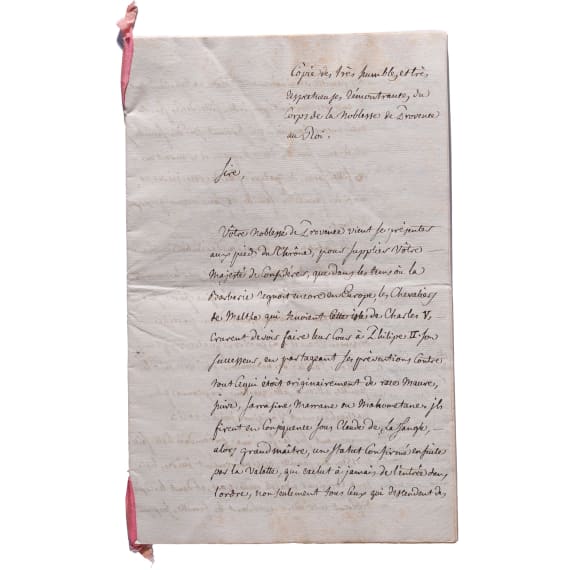 Côpie des três humbles, et très
respectueuses Rémontrances, du
Corps de la Noblesse de Provence
au Roi.
Sire,
Vôtre Noblesse de Provence vient se présenter
aux pieds du Thrône, pour supplier Vôtre
Majesté de Considérer, que dans les tems où la
Barbarie regnoit encore en Europe, les Chevaliers
de Malthe qui tenoient de Charles V,
crurent devoir faire leur Cour à Philipe II son
successeur, en partageant ses préventions contre
tout ce qui étoit originairement de race Maure,
juive, Sarrasine, Marrane ou Mahometane; ils
firent en Conséquence sous Claude de la Sangle,
alors grand maître, un Statut Confirmé ensuite
par la Valette, qui exclut à jamais de l'entrée dans
l'ordre, non seulement tous Ceux qui descendent des